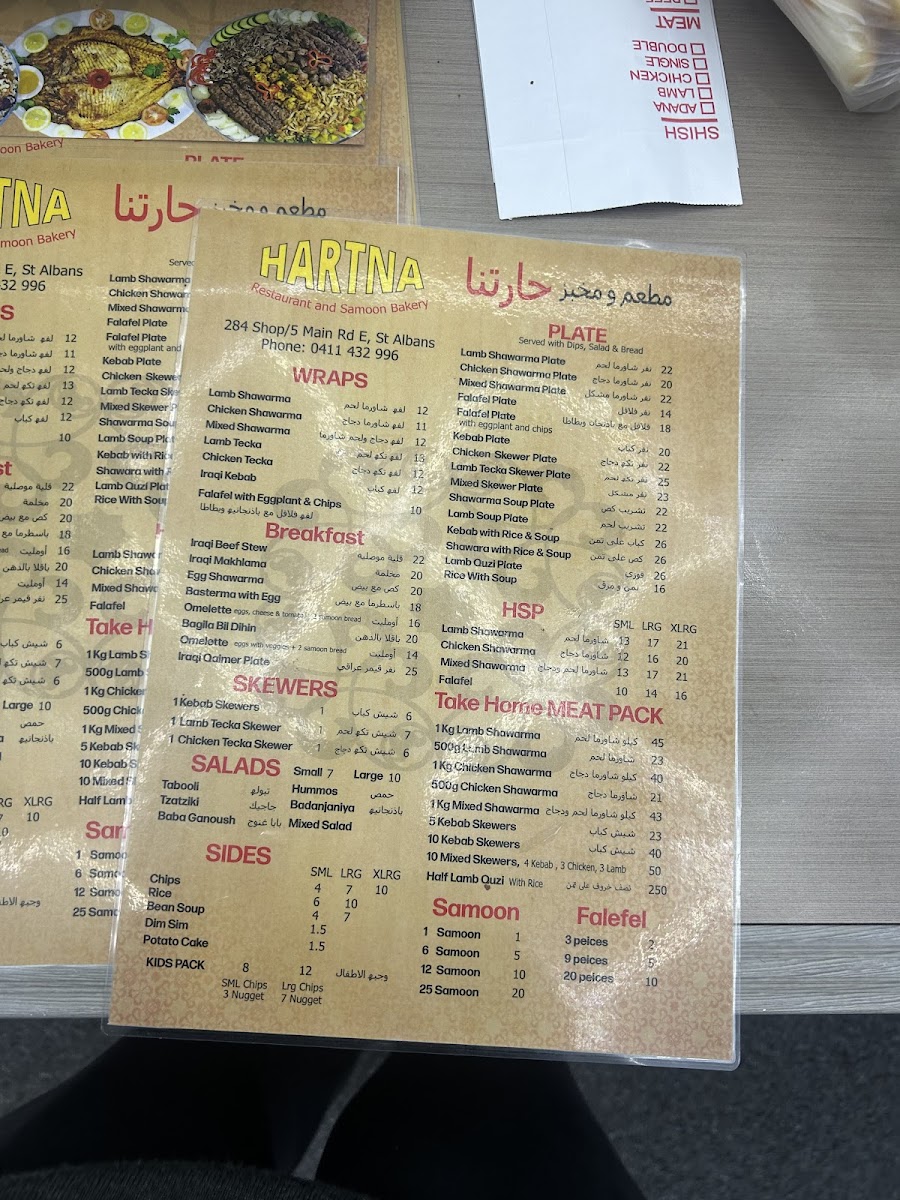 MEAT
DOUBLE
SINGLE
CHICKEN
LAMB
ADANA
SHISH
PLATE
TNA
حارتنا
E, St Albans
HARTNA
Restaurant and Samoon Bakery
مطعم و مخبز حارتنا
284 Shop/5 Main Rd E, St Albans
Phone: 0411 432 996
WRAPS
Lamb Shawarma لفه شاورما لحم 12
Chicken Shawarma لفه شاورما دجاج 11
Mixed Shawarma لفه دجاج ولحم شاورما 12
Lamb Tecka لفه تكه لحم 13
Chicken Tecka لفه تكه دجاج 12
Iraqi Kebab لفه كباب 12
Falafel with Eggplant & Chips 10
لفه فلافل مع باذنجانيه وبطاطا
Breakfast
Iraqi Beef Stew قلية موصلية 22
Iraqi Makhlama مخلمة 20
Egg Shawarma كص مع بيض 20
Basterma with Egg باسطرما مع بيض 18
Omelette eggs, cheese & tomato + 2 samoon bread أومليت 16
Bagila Bil Dihin باقلا بالدهن 20
Omelette eggs with veggies + 2 samoon bread أومليت 14
Iraqi Qaimer Plate نفر قيمر عراقي 25
SKEWERS
1 Kebab Skewers 1 شيش كباب 6
1 Lamb Tecka Skewer 1 شيش تكه لحم 7
1 Chicken Tecka Skewer 1 شيش تكه دجاج 6
SALADS Small 7 Large 10
Tabooli تبوله Hummos حمص
Tzatziki جاجيك Badanjaniya باذنجانيه
Baba Ganoush بابا غنوج Mixed Salad
SIDES
SML LRG XLRG
Chips 4 7 10
Rice 6 10
Bean Soup 4 7
Dim Sim 1.5
Potato Cake 1.5
KIDS PACK 8 12 وجبة الاطفال
SML Chips Lrg Chips
3 Nugget 7 Nugget
PLATE
Served with Dips, Salad & Bread
Lamb Shawarma Plate نفر شاورما لحم 22
Chicken Shawarma Plate نفر شاورما دجاج 20
Mixed Shawarma Plate نفر شاورما مشكل 22
Falafel Plate نفر فلافل 14
Falafel Plate فلافل مع باذنجان وبطاطا 18
with eggplant and chips
Kebab Plate نفر كباب 20
Chicken Skewer Plate نفر تكه دجاج 22
Lamb Tecka Skewer Plate نفر تكه لحم 25
Mixed Skewer Plate نفر مشكل 23
Shawarma Soup Plate تشريب كص 22
Lamb Soup Plate تشريب لحم 22
Kebab with Rice & Soup كباب على تمن 26
Shawara with Rice & Soup كص على تمن 26
Lamb Quzi Plate قوزي 26
Rice With Soup تمن و مرق 16
HSP
SML LRG XLRG
Lamb Shawarma شاورما لحم 13 17 21
Chicken Shawarma شاورما دجاج 12 16 20
Mixed Shawarma شاورما لحم ودجاج 13 17 21
Falafel 10 14 16
Take Home MEAT PACK
1Kg Lamb Shawarma كيلو شاورما لحم 45
500g Lamb Shawarma شاورما لحم 23
1Kg Chicken Shawarma كيلو شاورما دجاج 40
500g Chicken Shawarma شاورما دجاج 21
1Kg Mixed Shawarma كيلو شاورما لحم ودجاج 43
5 Kebab Skewers شيش كباب 23
10 Kebab Skewers شيش كباب 40
10 Mixed Skewers, 4 Kebab , 3 Chicken, 3 Lamb 50
Half Lamb Quzi With Rice نصف خروف على تمن 250
Samoon
1 Samoon 1
6 Samoon 5
12 Samoon 10
25 Samoon 20
Falefel
3 peices 2
9 peices 5
20 peices 10